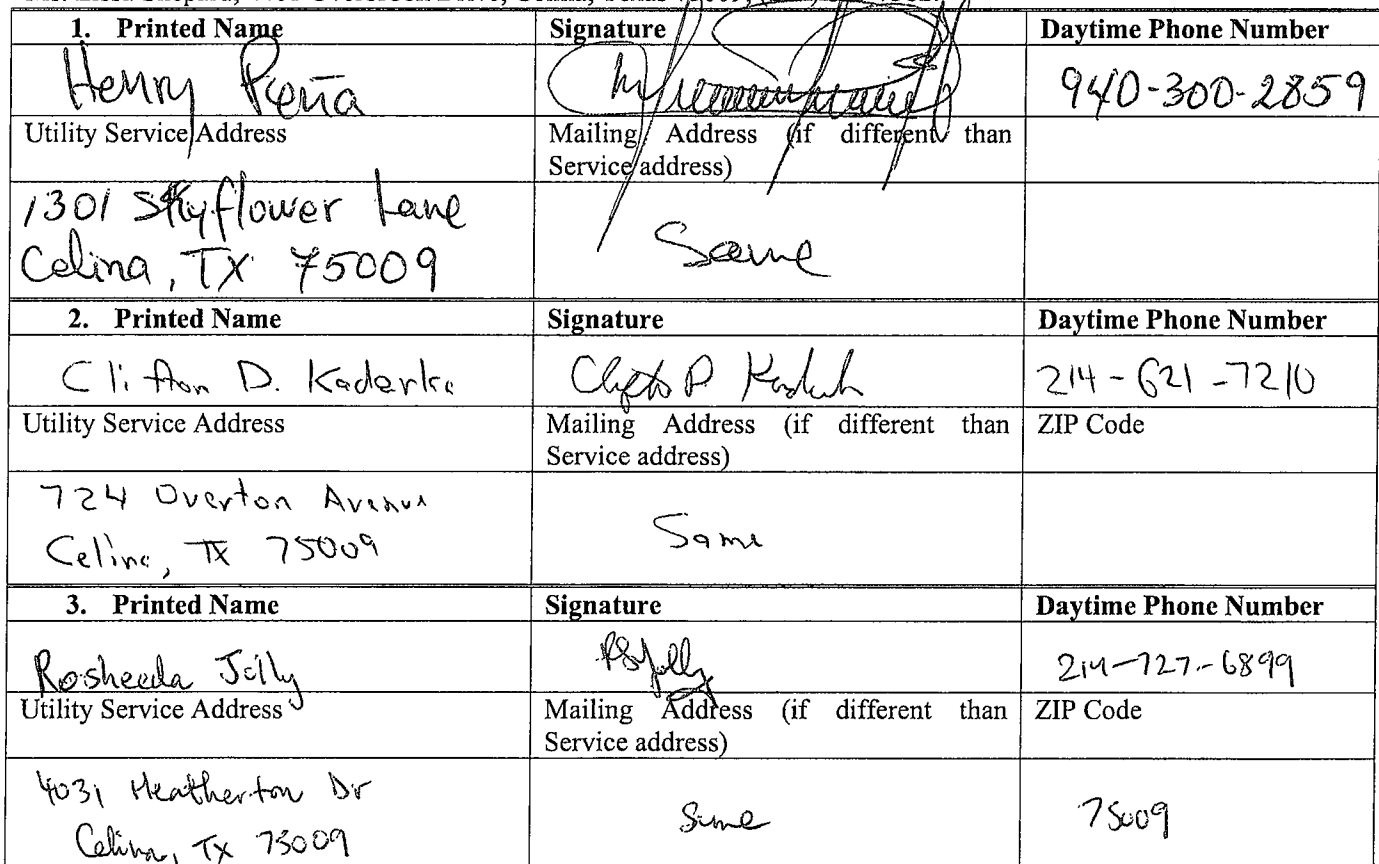 1. Printed Name Signature Daytime Phone Number
Henry Peña 940-300-2859
Utility Service Address Mailing Address (if different than
Service address)
1301 Skyflower Lane
Celina, TX 75009 Same
2. Printed Name Signature Daytime Phone Number
Clifton D. Kaderka 214-621-7210
Utility Service Address Mailing Address (if different than ZIP Code
Service address)
724 Overton Avenue
Celina, TX 75009 Same
3. Printed Name Signature Daytime Phone Number
Rosheeda Jolly RSJolly 214-727-6899
Utility Service Address Mailing Address (if different than ZIP Code
Service address)
4031 Heatherton Dr
Celina, TX 75009 Same 75009